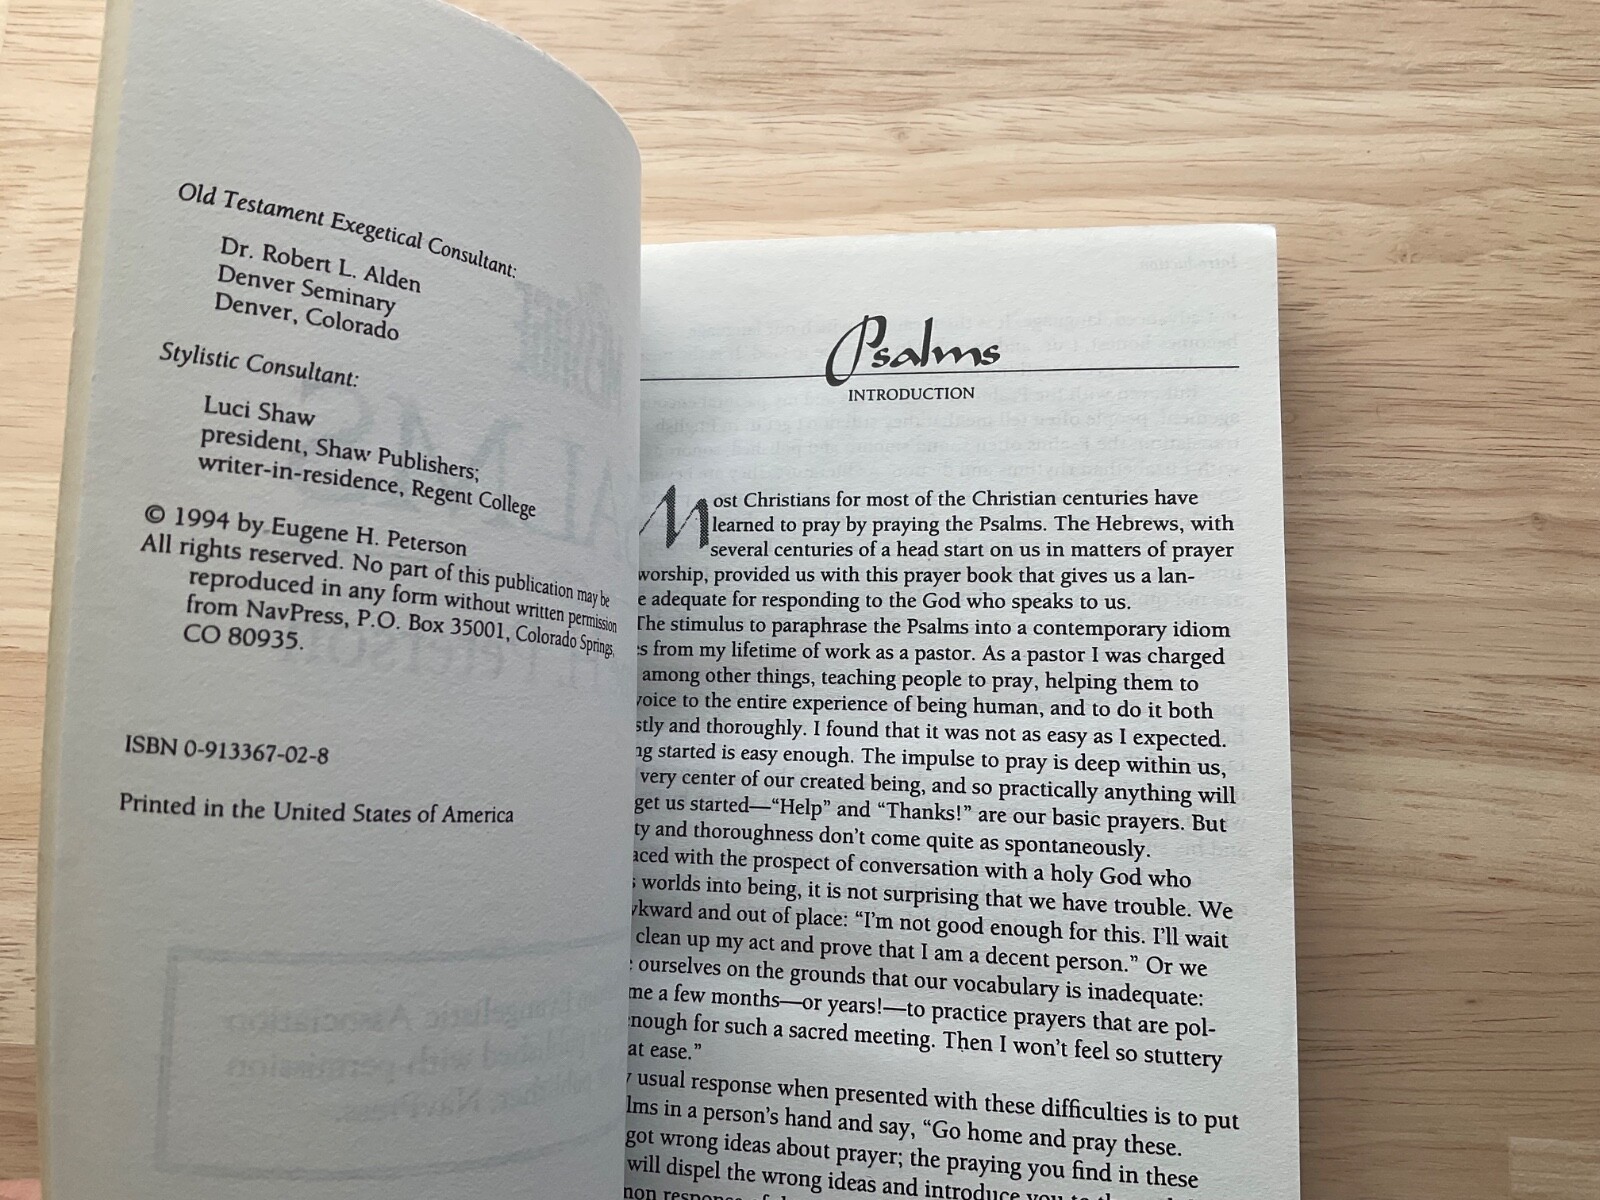 Old Testament Exegetical Consultant:
Dr. Robert L. Alden
Denver Seminary
Denver, Colorado
Stylistic Consultant:
Luci Shaw
president, Shaw Publishers;
writer-in-residence, Regent College
© 1994 by Eugene H. Peterson
All rights reserved. No part of this publication may be
reproduced in any form without written permission
from NavPress, P.O. Box 35001, Colorado Springs,
CO 80935.
ISBN 0-913367-02-8
Printed in the United States of America
Psalms
INTRODUCTION
Most Christians for most of the Christian centuries have
learned to pray by praying the Psalms. The Hebrews, with
several centuries of a head start on us in matters of prayer
worship, provided us with this prayer book that gives us a lan-
adequate for responding to the God who speaks to us.
The stimulus to paraphrase the Psalms into a contemporary idiom
from my lifetime of work as a pastor. As a pastor I was charged
among other things, teaching people to pray, helping them to
voice to the entire experience of being human, and to do it both
and thoroughly. I found that it was not as easy as I expected.
started is easy enough. The impulse to pray is deep within us,
very center of our created being, and so practically anything will
get us started—“Help” and “Thanks!” are our basic prayers. But
and thoroughness don’t come quite as spontaneously.
with the prospect of conversation with a holy God who
worlds into being, it is not surprising that we have trouble. We
and out of place: “I’m not good enough for this. I’ll wait
clean up my act and prove that I am a decent person.” Or we
ourselves on the grounds that our vocabulary is inadequate:
me a few months—or years!—to practice prayers that are pol-
enough for such a sacred meeting. Then I won’t feel so stuttery
at ease.”
usual response when presented with these difficulties is to put
in a person’s hand and say, “Go home and pray these.
got wrong ideas about prayer; the praying you find in these
will dispel the wrong ideas and introduce you to
response